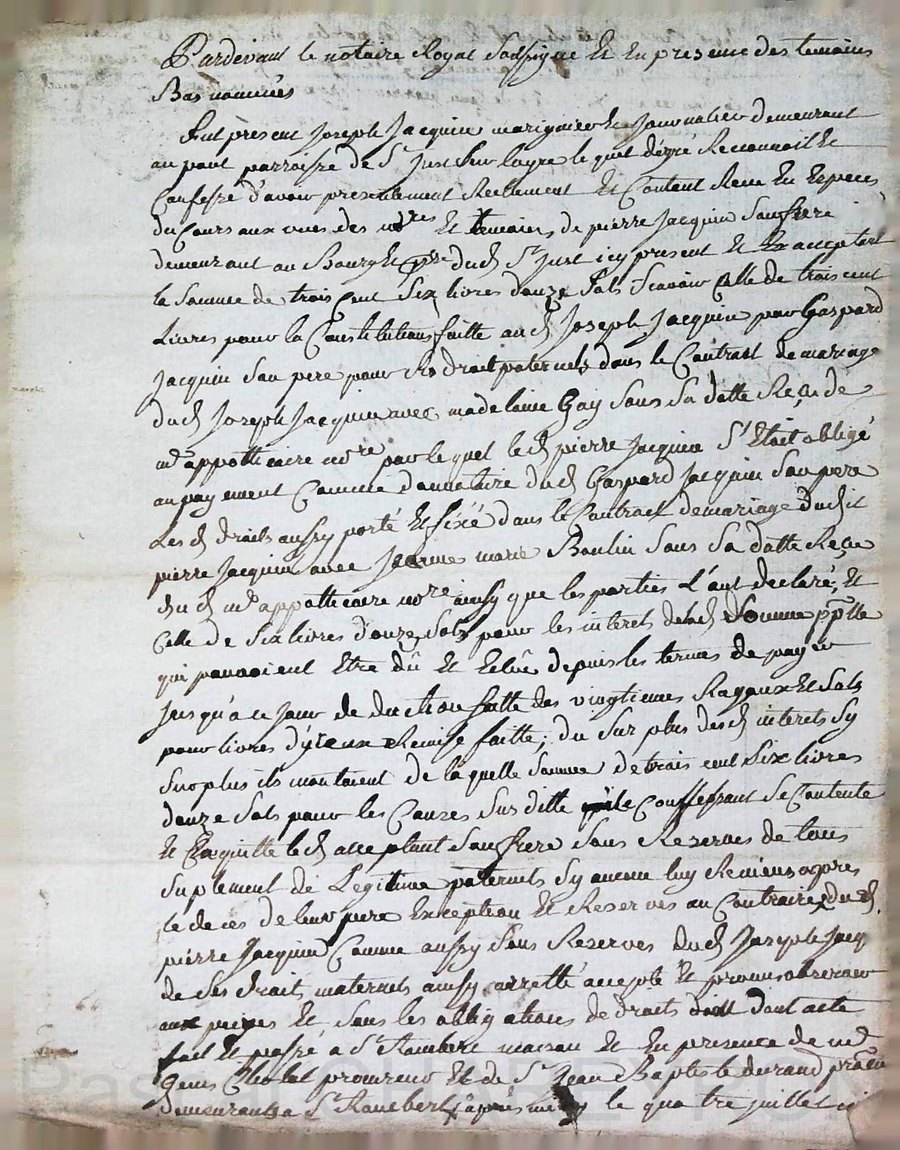 Pardevant le notaire Royal Soussigné Et En presence des temoins
Bas nommés
fut present Joseph Jacquin marignier Et Journalier demeurant
au pont parroisse de St Just Sur Loyre le quel de gré Reconnoit Et
Confesse d'avoir presentement Reellement Et Contant Receu En Especes
du Cours aux vues des nd res Et temoins, de pierre Jacquin Son frere
demeurant au Bourg Et psse dud St Just icy present Et acceptant
la Somme de trois Cent Six livres douze Sols Scavoir Celle de trois cent
Livres pour la Constitution faitte aud Joseph Jacquin par Gaspard
Jacquin Son pere pour Ses droits paternels dans le Contrast de mariage
dud Joseph Jacquin avec madelaine Gay Sous Sa datte Reçu de
me appotticaire nore par le quel led pierre Jacquin S'Etoit obligé
au payement Comme donnataire dud Gaspard Jacquin Son pere
Les d droits aussy porté Et fixé dans le Contract de mariage dudit
pierre Jacquin avec Jeanne marie Boulin Sous Sa datte Reçue
du d me appotticaire nore ainsy que les parties L'ont declaré, Et
Celle de Six livres douze Sols pour les interets de lad Somme pplle
qui pouvoient Etre dû Et Echû depuis les termes de payer
Jusqu'a ce Jour de duction faitte des vingtiemes Royaux Et Sols
pour livres d'yceux Remise faitte; du Sur plus desd interets Sy
Surplus ils montoient de la quelle Somme de trois cent Six livres
douze Sols pour les Causes Sus ditte le Confessant Se Contente
Et En quitte led acceptant Son frere Sans Reserves de tous
Suplement de Legitime paternels Sy aucun luy Reviens apres
le deces de leur pere Exception Et Reserves au Contraire dud
pierre Jacquin Comme aussy Sans Reserves dud Joseph Jacq
de Ses droits maternels ainsy arretté accepté Et promis observer
aux peines Et Sous les obligations de droits dont acte
fait Et passé a St Rambert maison Et En presence de me
procureur Et de Sr Jean Baptiste durand
demeurants a St Rambert apres midy le quatre Juillet